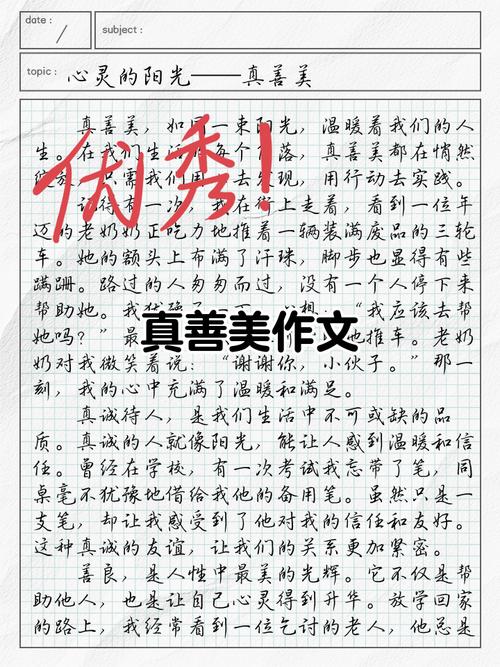 date :
subject :
topic : 心灵的阳光——真善美
真善美，如同一束阳光，温暖着我们的人
生。在我们生活的每个角落，真善美都在悄然
绽放，只需我们用心去发现，用行动去实践。
记得有一次，我在街上走着，看到一位年
迈的老奶奶正吃力地推着一辆装满废品的三轮
车。她的额头上布满了汗珠，脚步也显得有些
蹒跚。路过的人匆匆而过，没有一个人停下来
帮助她。我犹豫了一下，心想：“我应该去帮
她吗？”最 他推车。老奶
奶对我微笑着说：“谢谢你，小伙子。”那一
刻，我的心中充满了温暖和满足。
真诚待人，是我们生活中不可或缺的品
质。真诚的人就像阳光，能让人感到温暖和信
任。曾经在学校，有一次考试我忘带了笔，同
桌毫不犹豫地借给我他的备用笔。虽然只是一
支笔，却让我感受到了他对我的信任和友好。
这种真诚的友谊，让我们的关系更加紧密。
善良，是人性中最美的光辉。它不仅是帮
助他人，也是让自己心灵得到升华。放学回家
的路上，我经常看到一位乞讨的老人，他总是
优秀！
真善美作文